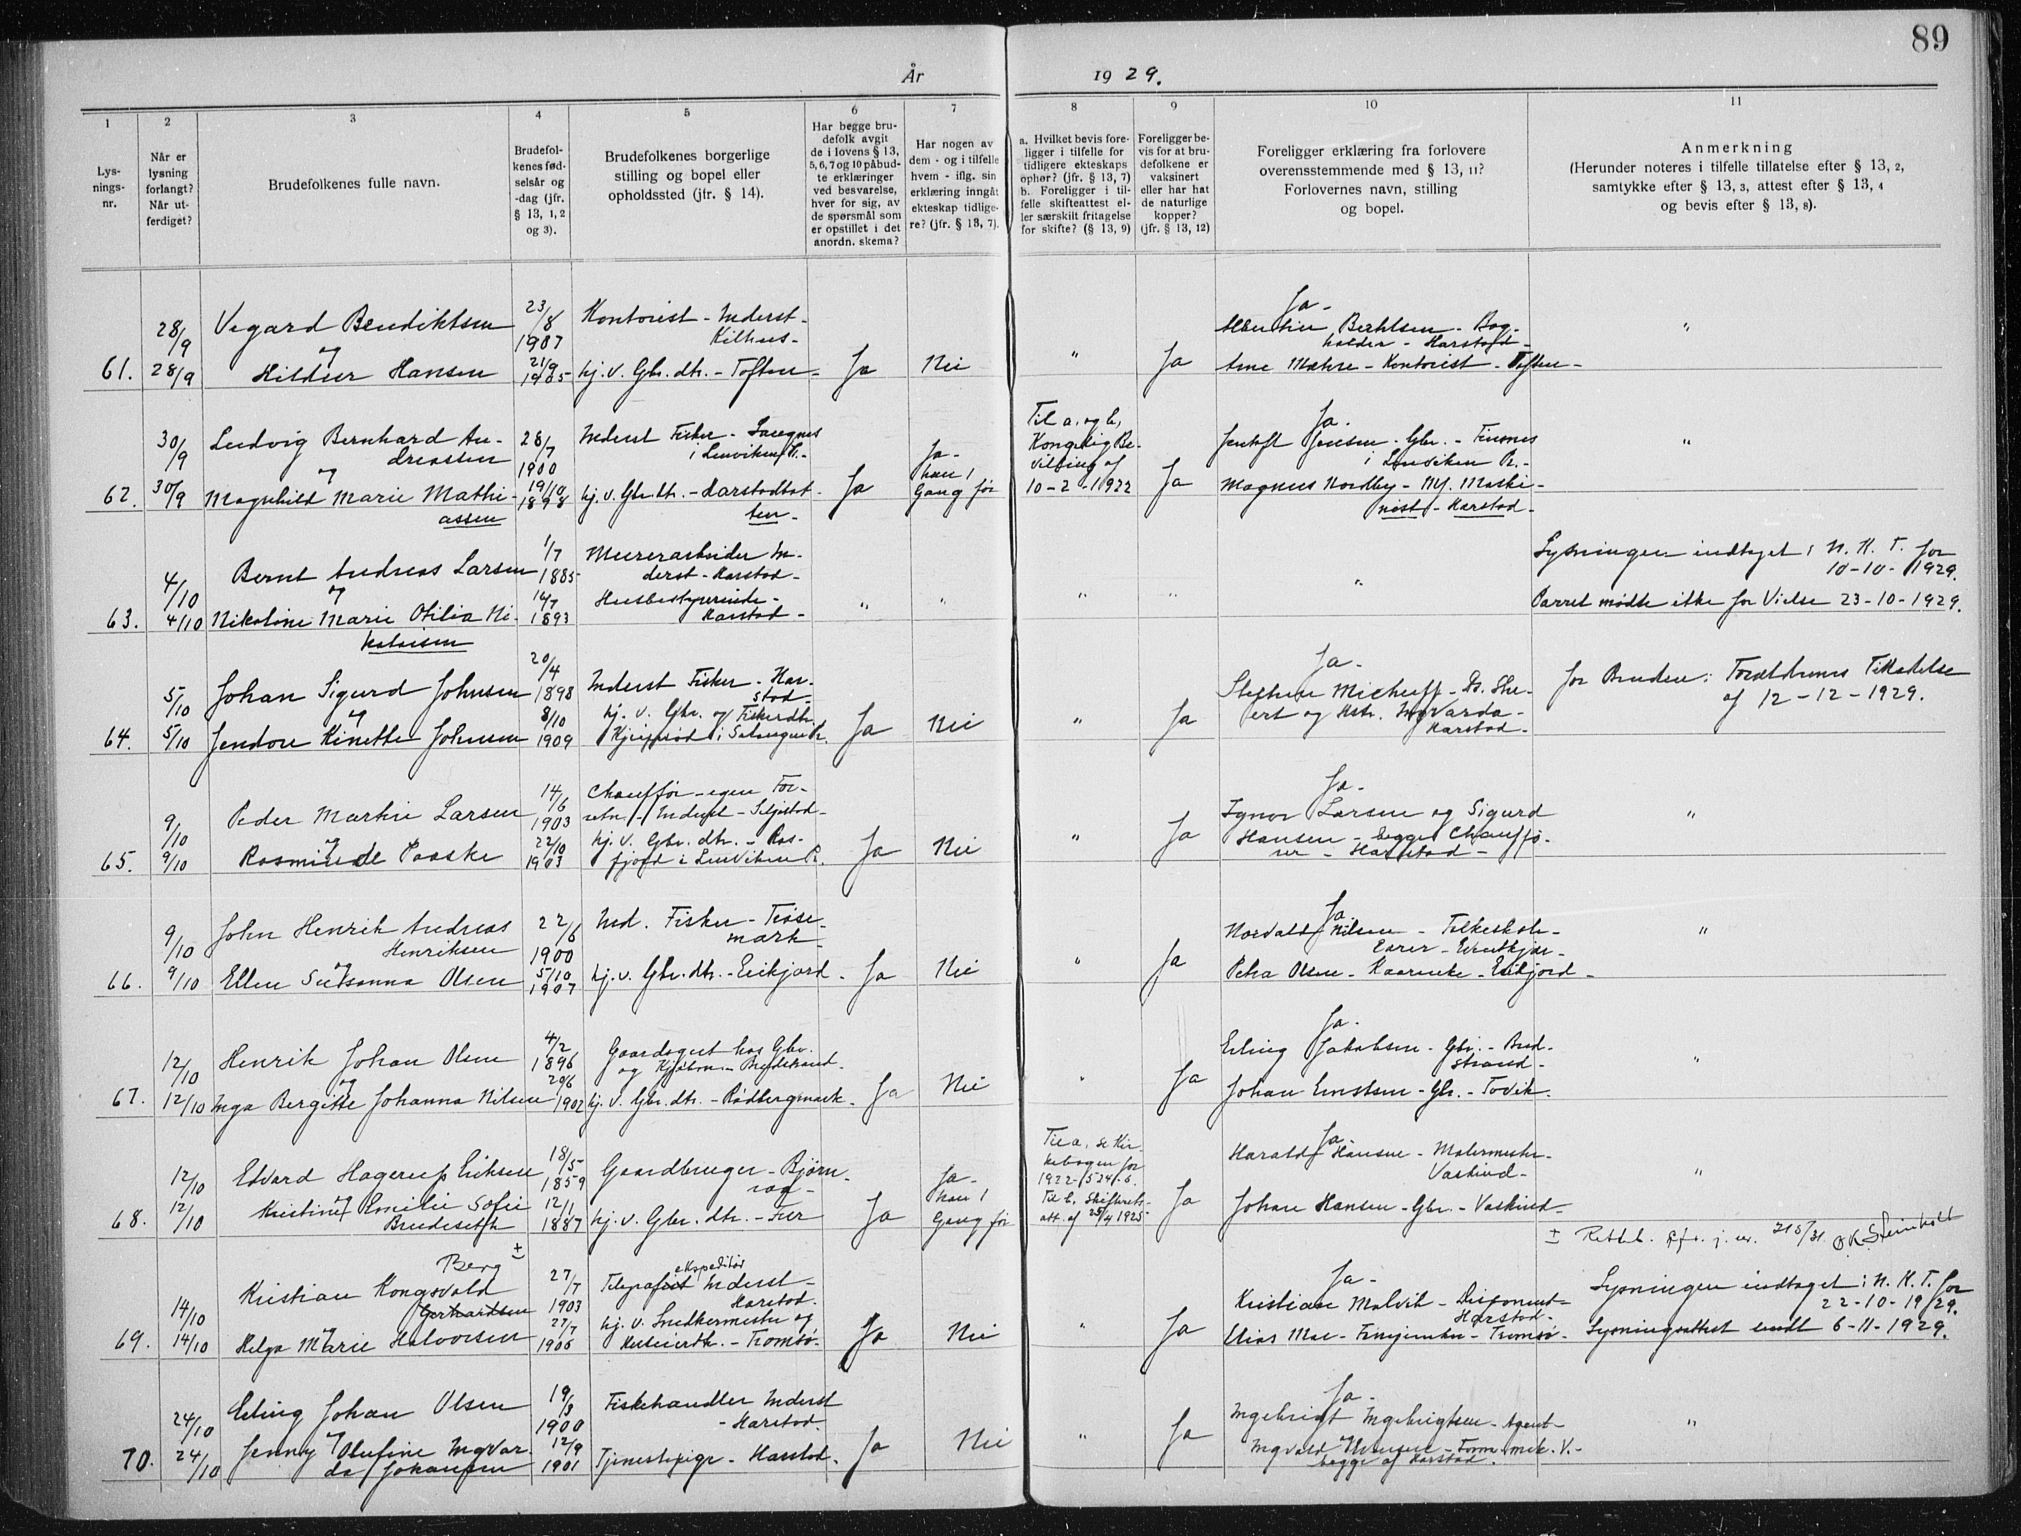 89
År 1929.
1
2
3
4
5
6
7
8
9
10
11
Lys-
nings-
nr.
Når er
lysning
forlangt?
Når ut-
ferdiget?
Brudefolkenes fulle navn.
Brudefol-
kenes fød-
selsår og
-dag (jfr.
§ 13, 1, 2
og 3).
Brudefolkenes borgerlige
stilling og bopel eller
opholdssted (jfr. § 14).
Har begge bru-
defolk avgit
de i lovens § 13,
5, 6, 7 og 10 påbud-
te erklæringer
ved besvarelse,
hver for sig, av
de spørsmål som
er opstillet i det
anordn. skema?
Har nogen av
dem - og i tilfelle
hvem - iflg. sin
erklæring inngåt
ekteskap tidlige-
re? (jfr. § 13, 7).
a. Hvilket bevis fore-
ligger i tilfelle for
tidligere ekteskaps
ophør? (jfr. § 13, 7)
b. Foreligger i til-
felle skifteattest el-
ler særskilt fritagelse
for skifte? (§ 13, 9)
Foreligger be-
vis for at bru-
defolkene er
vaksinert
eller har hat
de naturlige
kopper?
(jfr. § 13, 12)
Foreligger erklæring fra forlovere
overensstemmende med § 13, 11?
Forlovernes navn, stilling
og bopel.
Anmerkning
(Herunder noteres i tilfelle tillatelse efter § 13, 2,
samtykke efter § 13, 3, attest efter § 13, 4
og bevis efter § 13, 8).
61.
28/9
28/9
Vegard Bendiktsen
og
Hildur Hansen
23/8
1907
21/9
1905
Kontorist - Inderst -
Kilhus -
hj. v. Gbr. dtr. - Toften -
Ja
Nei
"
Ja
Ja -
Bertelsen - Bog-
holder - Harstad -
Arne Mæhre - Kontorist - Toften -
"
62.
30/9
30/9
Ludvig Bernhard An-
dreassen
og
Magnhild Marie Mathi-
assen
28/7
1900
19/10
1898
Inderst Fisker -
i Lenviken P. -
hj. v. Gbr. dtr. - Harstadbot-
ten -
Ja
Ja -
han 1
Gang før
Til a, og b,
Kongelig Be-
villing af
10-2-1922
Ja
Ja.
Jentoft Jensen - Gbr. - Finsnes
i Lenviken P. -
Magnus Nordby - Maski-
nist - Harstad -
"
63.
4/10
4/10
Bernt Andreas Larsen
og
Nikoline Marie Otilia Ni-
kolaisen
1/7
1885
14/7
1893
Murerarbeider In-
derst - Harstad -
Husbestyrerinde -
Harstad -
"
"
"
"
"
Lysningen indtaget i N. H. T. for
10-10-1929.
Parret mødte ikke for Vielse 23-10-1929.
64.
5/10
5/10
Johan Sigurd Johnsen
og
Jendore Kinette Johnsen
20/4
1898
8/10
1909
Inderst Fisker - Har-
stad -
hj. v. Gbr. og Fiskerdtr.
i Salangen P.
Ja
Nei
"
Ja
Ja -
og Hstr. Ingvarda -
Harstad -
for Bruden: Forældrenes Tilladelse
af 12-12-1929.
65.
9/10
9/10
Peder Martin Larsen
og
Rasminde Paaske
14/6
1903
22/10
1903
Chauffør - egen For-
retn - Inderst -
hj. v. Gbr. dtr. - Ros-
fjord i Lenviken P.
Ja
Nei
"
Ja
Ja -
Larsen og Sigurd
Hansen - begge Chauffø-
rer - Harstad -
"
66.
9/10
9/10
John Henrik Andreas
Henriksen
og
Ellen Susanna Olsen
22/6
1900
5/10
1907
Ind. Fisker - Trøse-
mark -
hj. v. Gbr. dtr. - Erikjord -
Ja
Nei
"
Ja
Ja
Norvald Nilsen - Folkeskole-
lærer - Evenskjær -
Petra Olsen - - Erikjord -
"
67.
12/10
12/10
Henrik Johan Olsen
og
Inga Bergitte Johanna Nilsen
4/2
1896
20/6
1902
Gaardsgut hos Gbr.
og - Bredstrand -
hj. v. Gbr. dtr. - Rødbergmark -
Ja
Nei
"
Ja
Ja -
Erling Jakobsen - Gbr. - Bred-
strand -
Johan Ernstsen - Gbr. - Tovik -
"
68.
12/10
12/10
Edvard Hagerup Eriksen
og
Kristine Emilie Sofie
Brudeseth
18/5
1859
12/1
1887
Gaardbruger - Bjørn-
raa -
hj. v. Gbr. dtr. -
Ja
Ja -
han 1
Gang før
Til a, se Kir-
kebogen for
1922-
Til b, Skifterets-
att. af 25/4 1925 -
Ja
Ja
Harald Hansen - Malermester -
Vaskind -
Johan Hansen - Gbr. - Vaskind -
"
± Rettet. Cfr. j. nr. 215/31.
69.
14/10
14/10
Berg ±
Kristian Kongsvold
Gerhardsen
og
Helga Marie Halvorsen
27/7
1903
27/7
1906
ekspeditør
Telegrafist Inderst -
Harstad.
hj. v. Snedkermester og
- Tromsø -
Ja
Nei
Ja
Ja -
Kristian Malvik - Disponent -
Harstad -
Elias Moe - - Tromsø -
Lysningen indtaget i N. H. T. for
22-10-1929.
Lysningsattest sendt 6-11-1929.
70.
24/10
24/10
Erling Johan Olsen
og
Jenny Olufine Ingvar-
da Johansen
19/3
1900
12/9
1901
Fiskehandler Inderst
- Harstad.
Tjenestepige - Harstad -
Ja
Nei
"
Ja
Ja -
Ingebrigt Ingebrigtsen - Agent -
Ingvald - mek. V. -
begge af Harstad.
"